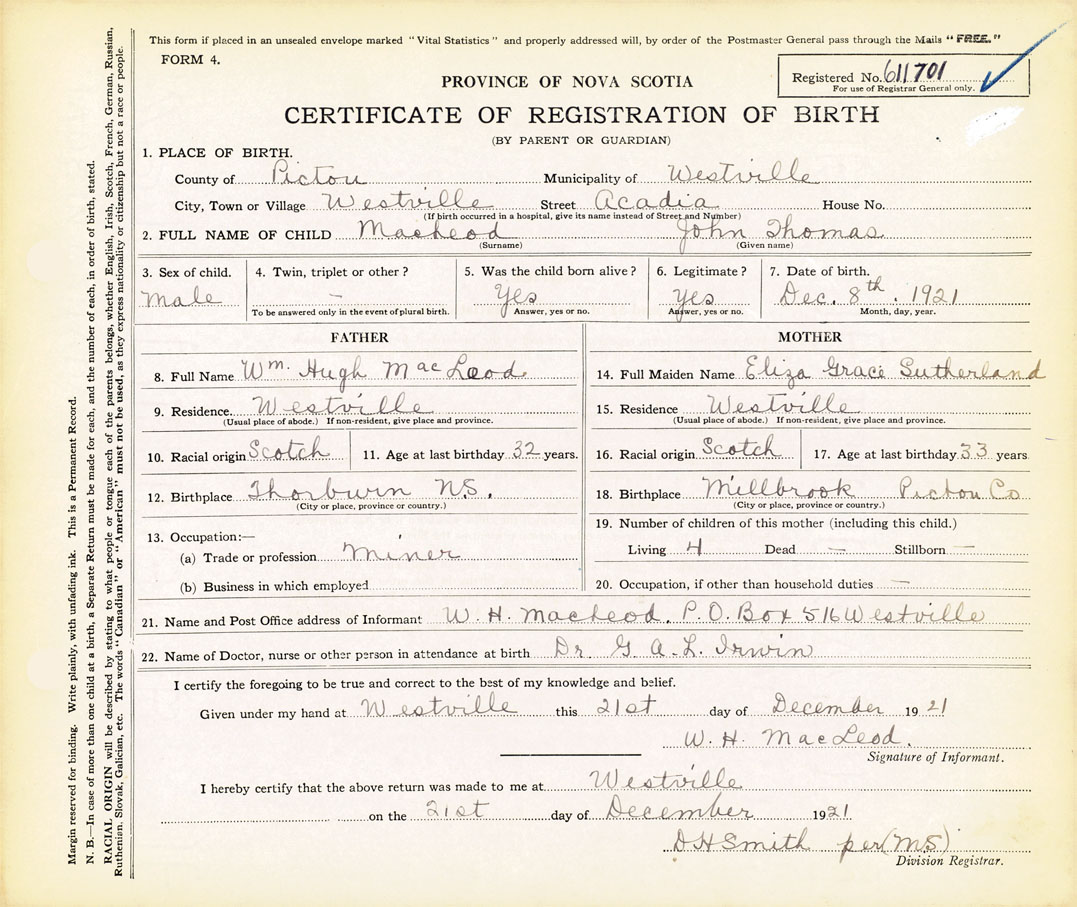 This form if placed in an unsealed envelope marked "Vital Statistics" and properly addressed will, by order of the Postmaster General pass through the Mails "FREE."
FORM 4.
Registered No. 611701
For use of Registrar General only.
PROVINCE OF NOVA SCOTIA
CERTIFICATE OF REGISTRATION OF BIRTH
(BY PARENT OR GUARDIAN)
1. PLACE OF BIRTH.
County of Pictou Municipality of Westville
City, Town or Village Westville Street Acadia House No.
(If birth occurred in a hospital, give its name instead of Street and Number)
2. FULL NAME OF CHILD MacLeod John Thomas
(Surname) (Given name)
3. Sex of child. 4. Twin, triplet or other? 5. Was the child born alive? 6. Legitimate? 7. Date of birth.
Male — Yes Yes Dec. 8th. 1921
To be answered only in the event of plural birth. Answer, yes or no. Answer, yes or no. Month, day, year.
FATHER
8. Full Name Wm. Hugh MacLeod
9. Residence. Westville
(Usual place of abode.) If non-resident, give place and province.
10. Racial origin Scotch 11. Age at last birthday 32 years.
12. Birthplace Thorburn N.S.
(City or place, province or country.)
13. Occupation:—
(a) Trade or profession Miner
(b) Business in which employed
MOTHER
14. Full Maiden Name Eliza Grace Sutherland
15. Residence Westville
(Usual place of abode.) If non-resident, give place and province.
16. Racial origin Scotch 17. Age at last birthday 33 years
18. Birthplace Millbrook Pictou Co
(City or place, province or country.)
19. Number of children of this mother (including this child.)
Living 4 Dead — Stillborn —
20. Occupation, if other than household duties —
21. Name and Post Office address of Informant W. H. MacLeod. P.O. Box 516 Westville
22. Name of Doctor, nurse or other person in attendance at birth Dr. G. A. L. Irwin
I certify the foregoing to be true and correct to the best of my knowledge and belief.
Given under my hand at Westville this 21st day of December 1921
W. H. MacLeod.
Signature of Informant.
I hereby certify that the above return was made to me at Westville
on the 21st day of December 1921
D H Smith per (M S)
Division Registrar.
Margin reserved for binding. Write plainly, with unfading ink. This is a Permanent Record.
N. B.—In case of more than one child at a birth, a Separate Return must be made for each, and the number of each, in order of birth, stated.
RACIAL ORIGIN will be described by stating to what people or tongue each of the parents belongs, whether English, Irish, Scotch, French, German, Russian,
Ruthenian, Slovak, Galician, etc. The words "Canadian" or "American" must not be used, as they express nationality or citizenship but not a race or people.